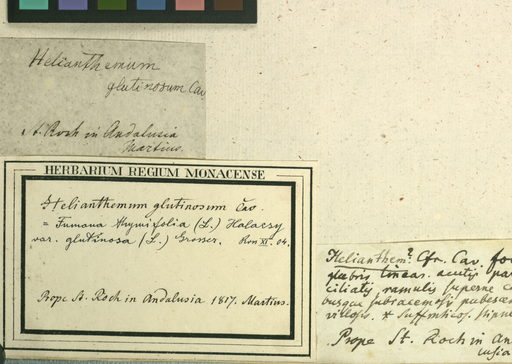 Helianthemum
glutinosum Cav
St. Roch in Andalusia
Martius.
HERBARIUM REGIUM MONACENSE
Helianthemum glutinosum Cav.
= Fumana thymifolia (L.) Halacsy
var. glutinosa (L.) Grosser. XI. 04.
Prope St. Roch in Andalusia 1817. Martius.
Helianthem? Cfr. Cav.
glabris linear. acutis
ciliatis ramulis superne
subracemosis
villosis. & Suffruticos.
Prope St. Roch in An